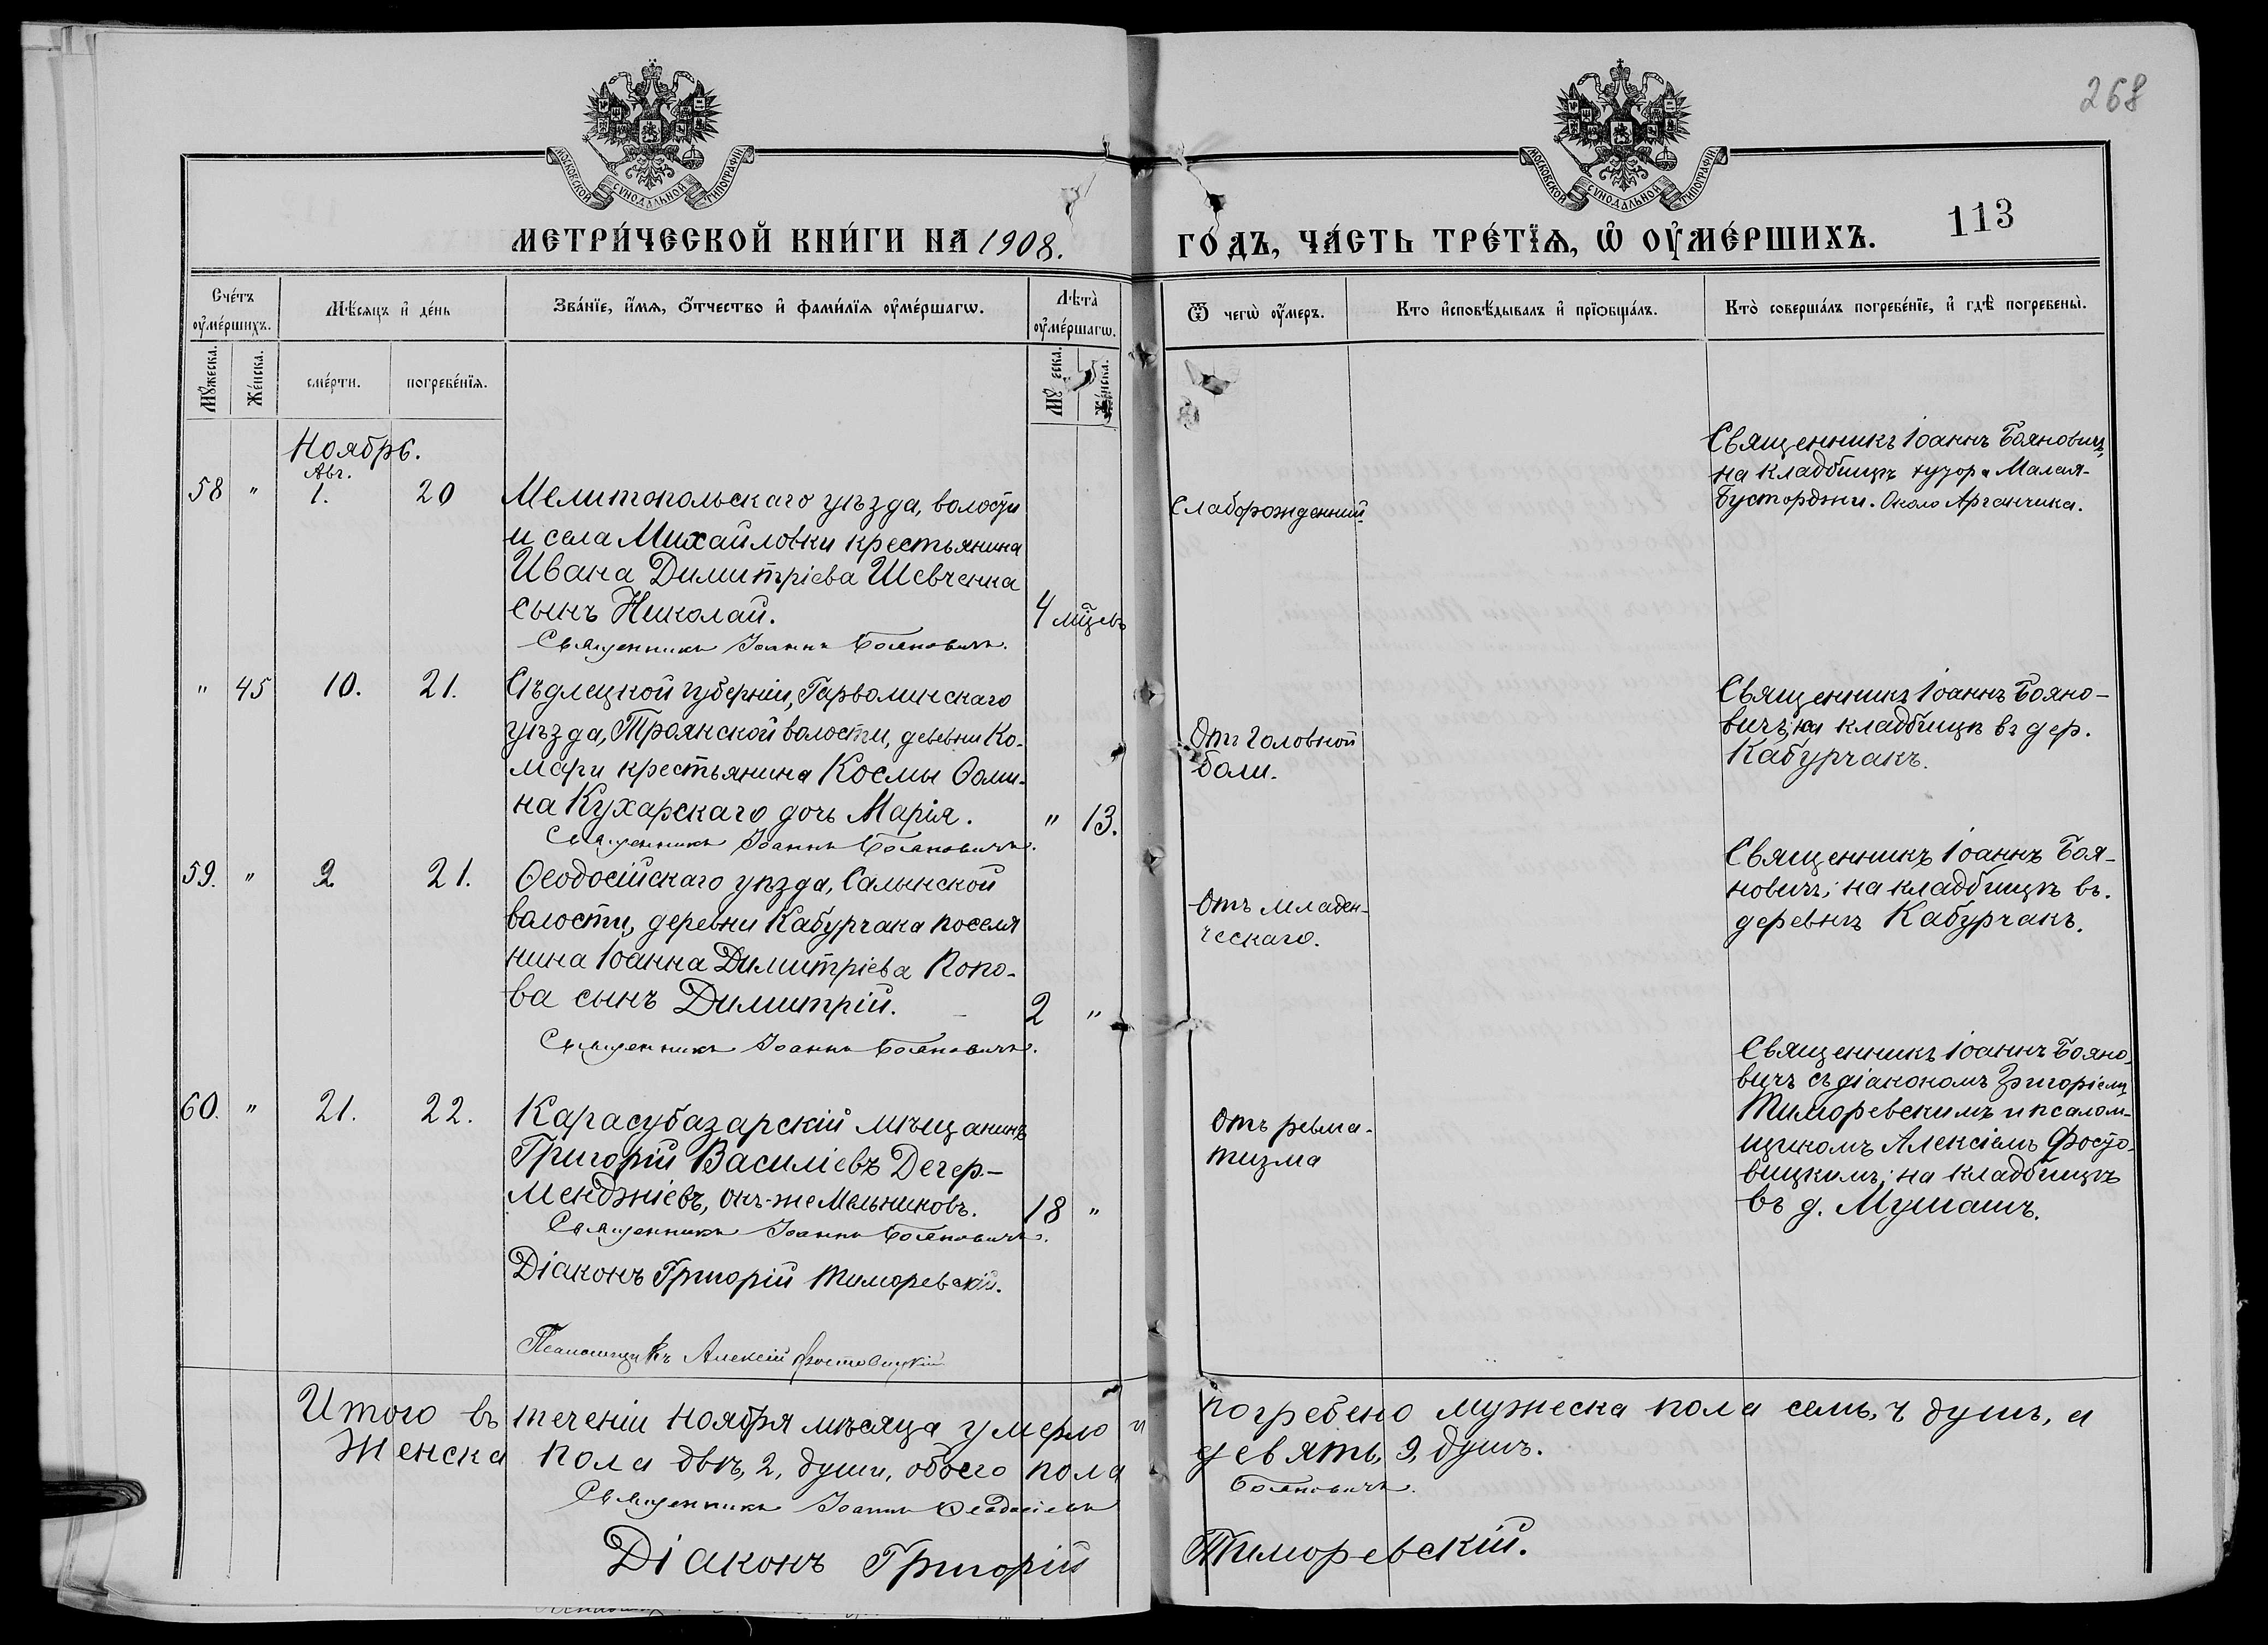 268
МОСКОВСКОЙ СУНОДАЛЬНОЙ ТИПОГРАФІИ.
МОСКОВСКОЙ СУНОДАЛЬНОЙ ТИПОГРАФІИ.
МЕТРИ́ЧЕСКОЙ КНИ́ГИ НА 1908.
ГО́ДЪ, ЧА́СТЬ ТРЕ́ТЇѦ, Ѡ҆ ОУ҆МЕ́РШИХЪ.
113
Сче́тъ оу҆ме́ршихъ.
Мѣ́сяцъ и҆ де́нь
Зва́нїе, и҆́мѧ, ѻ҆́тчество и҆ фами́лїѧ оу҆ме́ршагѡ.
Лѣта̀ оу҆ме́ршагѡ.
Ѿ чегѡ̀ оу҆́меръ.
Кто и҆сповѣ́дывалъ и҆ прїѻбща́лъ.
Кто̀ соверша́лъ погребе́нїе, и҆ гдѣ̀ погребены̀.
Мꙋ́жеска.
Же́нска.
сме́рти.
погребе́нїѧ.
Мꙋ еска.
Же́нска.
Ноябрь.
Авг.
58 " 1. 20
Мелитопольскаго уѣзда, волости
и села Михайловки крестьянина
Ивана Димитріева Шевченка
сынъ Николай.
4 мѣцевъ
Священникъ Іоаннъ Бояновичъ.
Слаборожденний
Священникъ Іоаннъ Бояновичъ,
на кладбищѣ хутора Малая-
Бусторджи. Около Арганчика.
" 45 10. 21.
Сѣдлецкой губерніи, Гарволинскаго
уѣзда, Троянской волости, деревни Ко-
мари крестьянина Космы Ѳоми-
на Кухарскаго дочь Марія.
" 13.
Священникъ Іоаннъ Бояновичъ.
Отъ головной
боли.
Священникъ Іоаннъ Бояно-
вичъ; на кладбищѣ въ дер.
Кабурчакъ.
59. " 2 21.
Ѳеодосійскаго уѣзда, Салынской
волости, деревни Кабурчака поселя
нина Іоанна Димитріева Попо-
ва сынъ Димитрій.
2 "
Священникъ Іоаннъ Бояновичъ.
Отъ младен-
ческаго.
Священникъ Іоаннъ Боя-
новичъ; на кладбищѣ въ.
деревнѣ Кабурчакъ.
60. " 21. 22.
Карасубазарскій мѣщанинъ
Григорій Василіевъ Дегер-
менджіевъ, онъ-же Мельниковъ.
18 "
Священникъ Іоаннъ Бояновичъ.
Діаконъ Григорій Тиморевскій.
Псаломщикъ Алексій Фостовицкій
Отъ ревма-
тизма
Священникъ Іоаннъ Бояно-
вичъ съ діакономъ Григоріемъ
Тиморевскимъ и псалом-
щикомъ Алексіемъ Фосто-
вицкимъ; на кладбищѣ
въ д. Мушашъ.
Итого въ теченіи ноября мѣсяца умерло и погребено мужеска пола семь, 7 душъ, а
женска пола двѣ, 2, души, обоего пола девять, 9, душъ.
Священникъ Іоаннъ Ѳеодосіевъ Бояновичъ.
Діаконъ Григорій Тиморевскій.